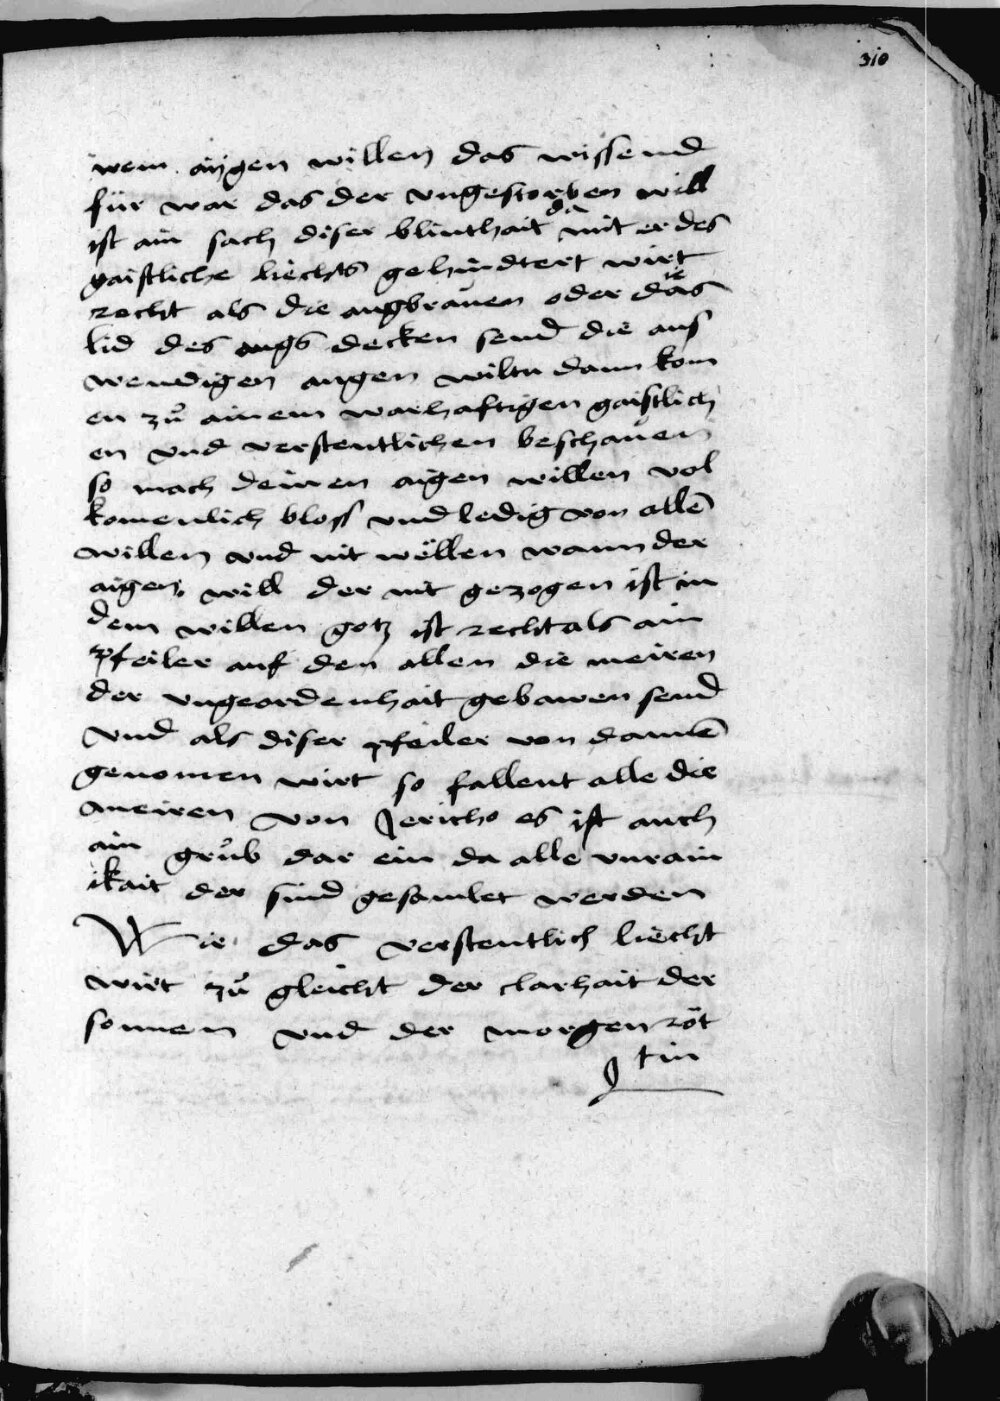 310
wem aijgen willen das wissend
für war das der vngestorben will
ist ain sach diser blinthait da mit er des
gaistliche liechts gehindtert wirt
recht als die augbrauen oder das ie
lid des augs decken send die aus
wendigen augen wiltu dann kom
en zů ainem warhaftigen gaistlich
en vnd verstentlichen beschauen
so mach deinen aigen willen vol
komenlich bloss vnd ledig von allē
willen vnd nit wöllen wann der
aigen will der nit gezogen ist in
dem willen gotz ist recht als ain
pfeiler auf den allen die meiren
der vngeordenhait gebawen send
vnd als diser pfeiler von dannē
genomen wirt so fallent alle die
meiren von Jericho es ist auch
ain grůb dar ein da alle vnrain
ikait der sind gesamlet werden
Wie das verstentlich liecht
wirt zů gleicht der clarhait der
sonnen vnd der morgen röt